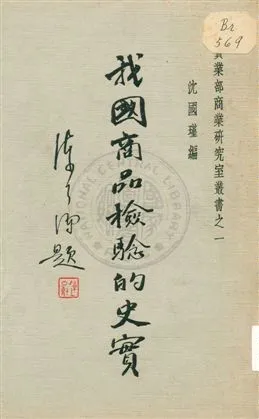 Br
569
實業部商業研究室叢書之一
沈國瑾編
我國商品檢驗的史實
題
NATIONAL CENTRAL LIBRARY